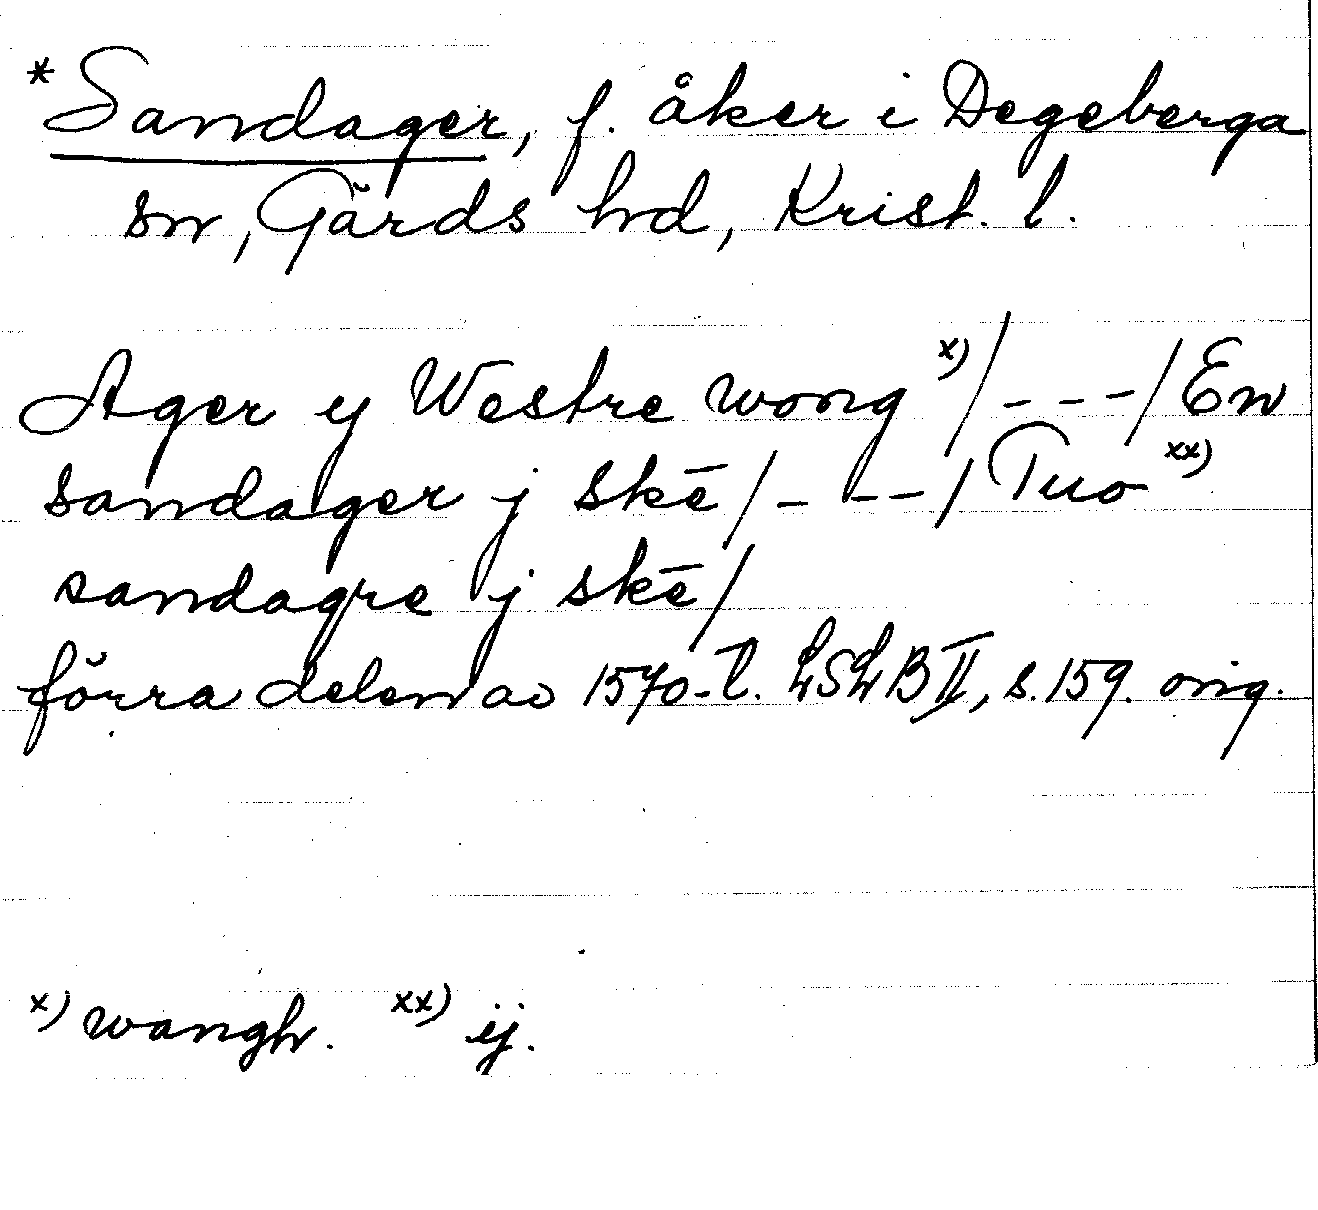 *Sandager, f. åker i Degeberga
sn, Gärds hd, Krist. l.
Ager y Westre wong x)/ - - - / En
sandager j skē / - - - / Tuo xx)
sandagre j skē /
förra delen av 1570-t. LSLB II, s. 159. orig.
x) wangh. xx) ij.